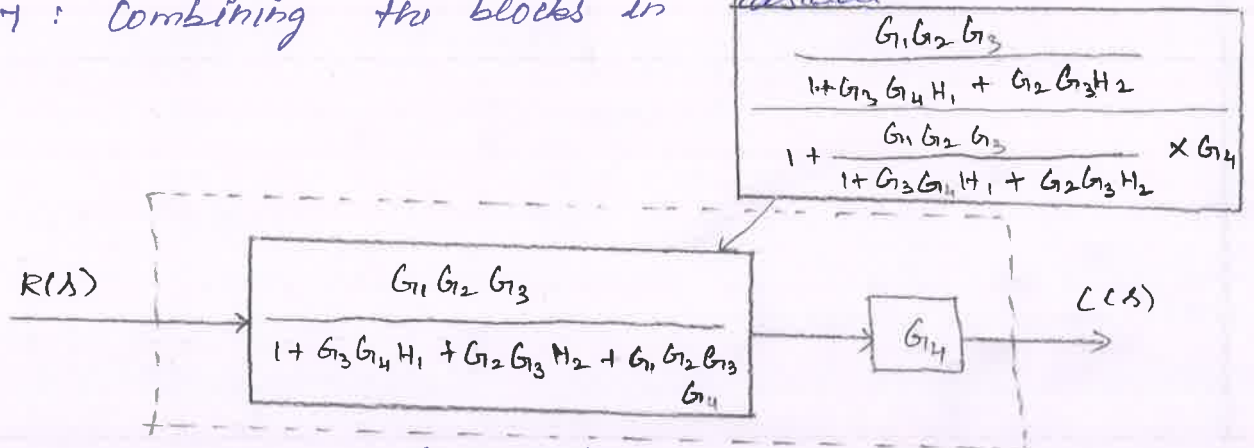 7 : Combining the blocks in
G1G2G3
1+G3G4H1 + G2G3H2
1+ G1G2G3 x G4
1+G3G4H1 + G2G3H2
R(s)
G1G2G3
1+G3G4H1 + G2G3H2 + G1G2G3
G4
G4
C(s)